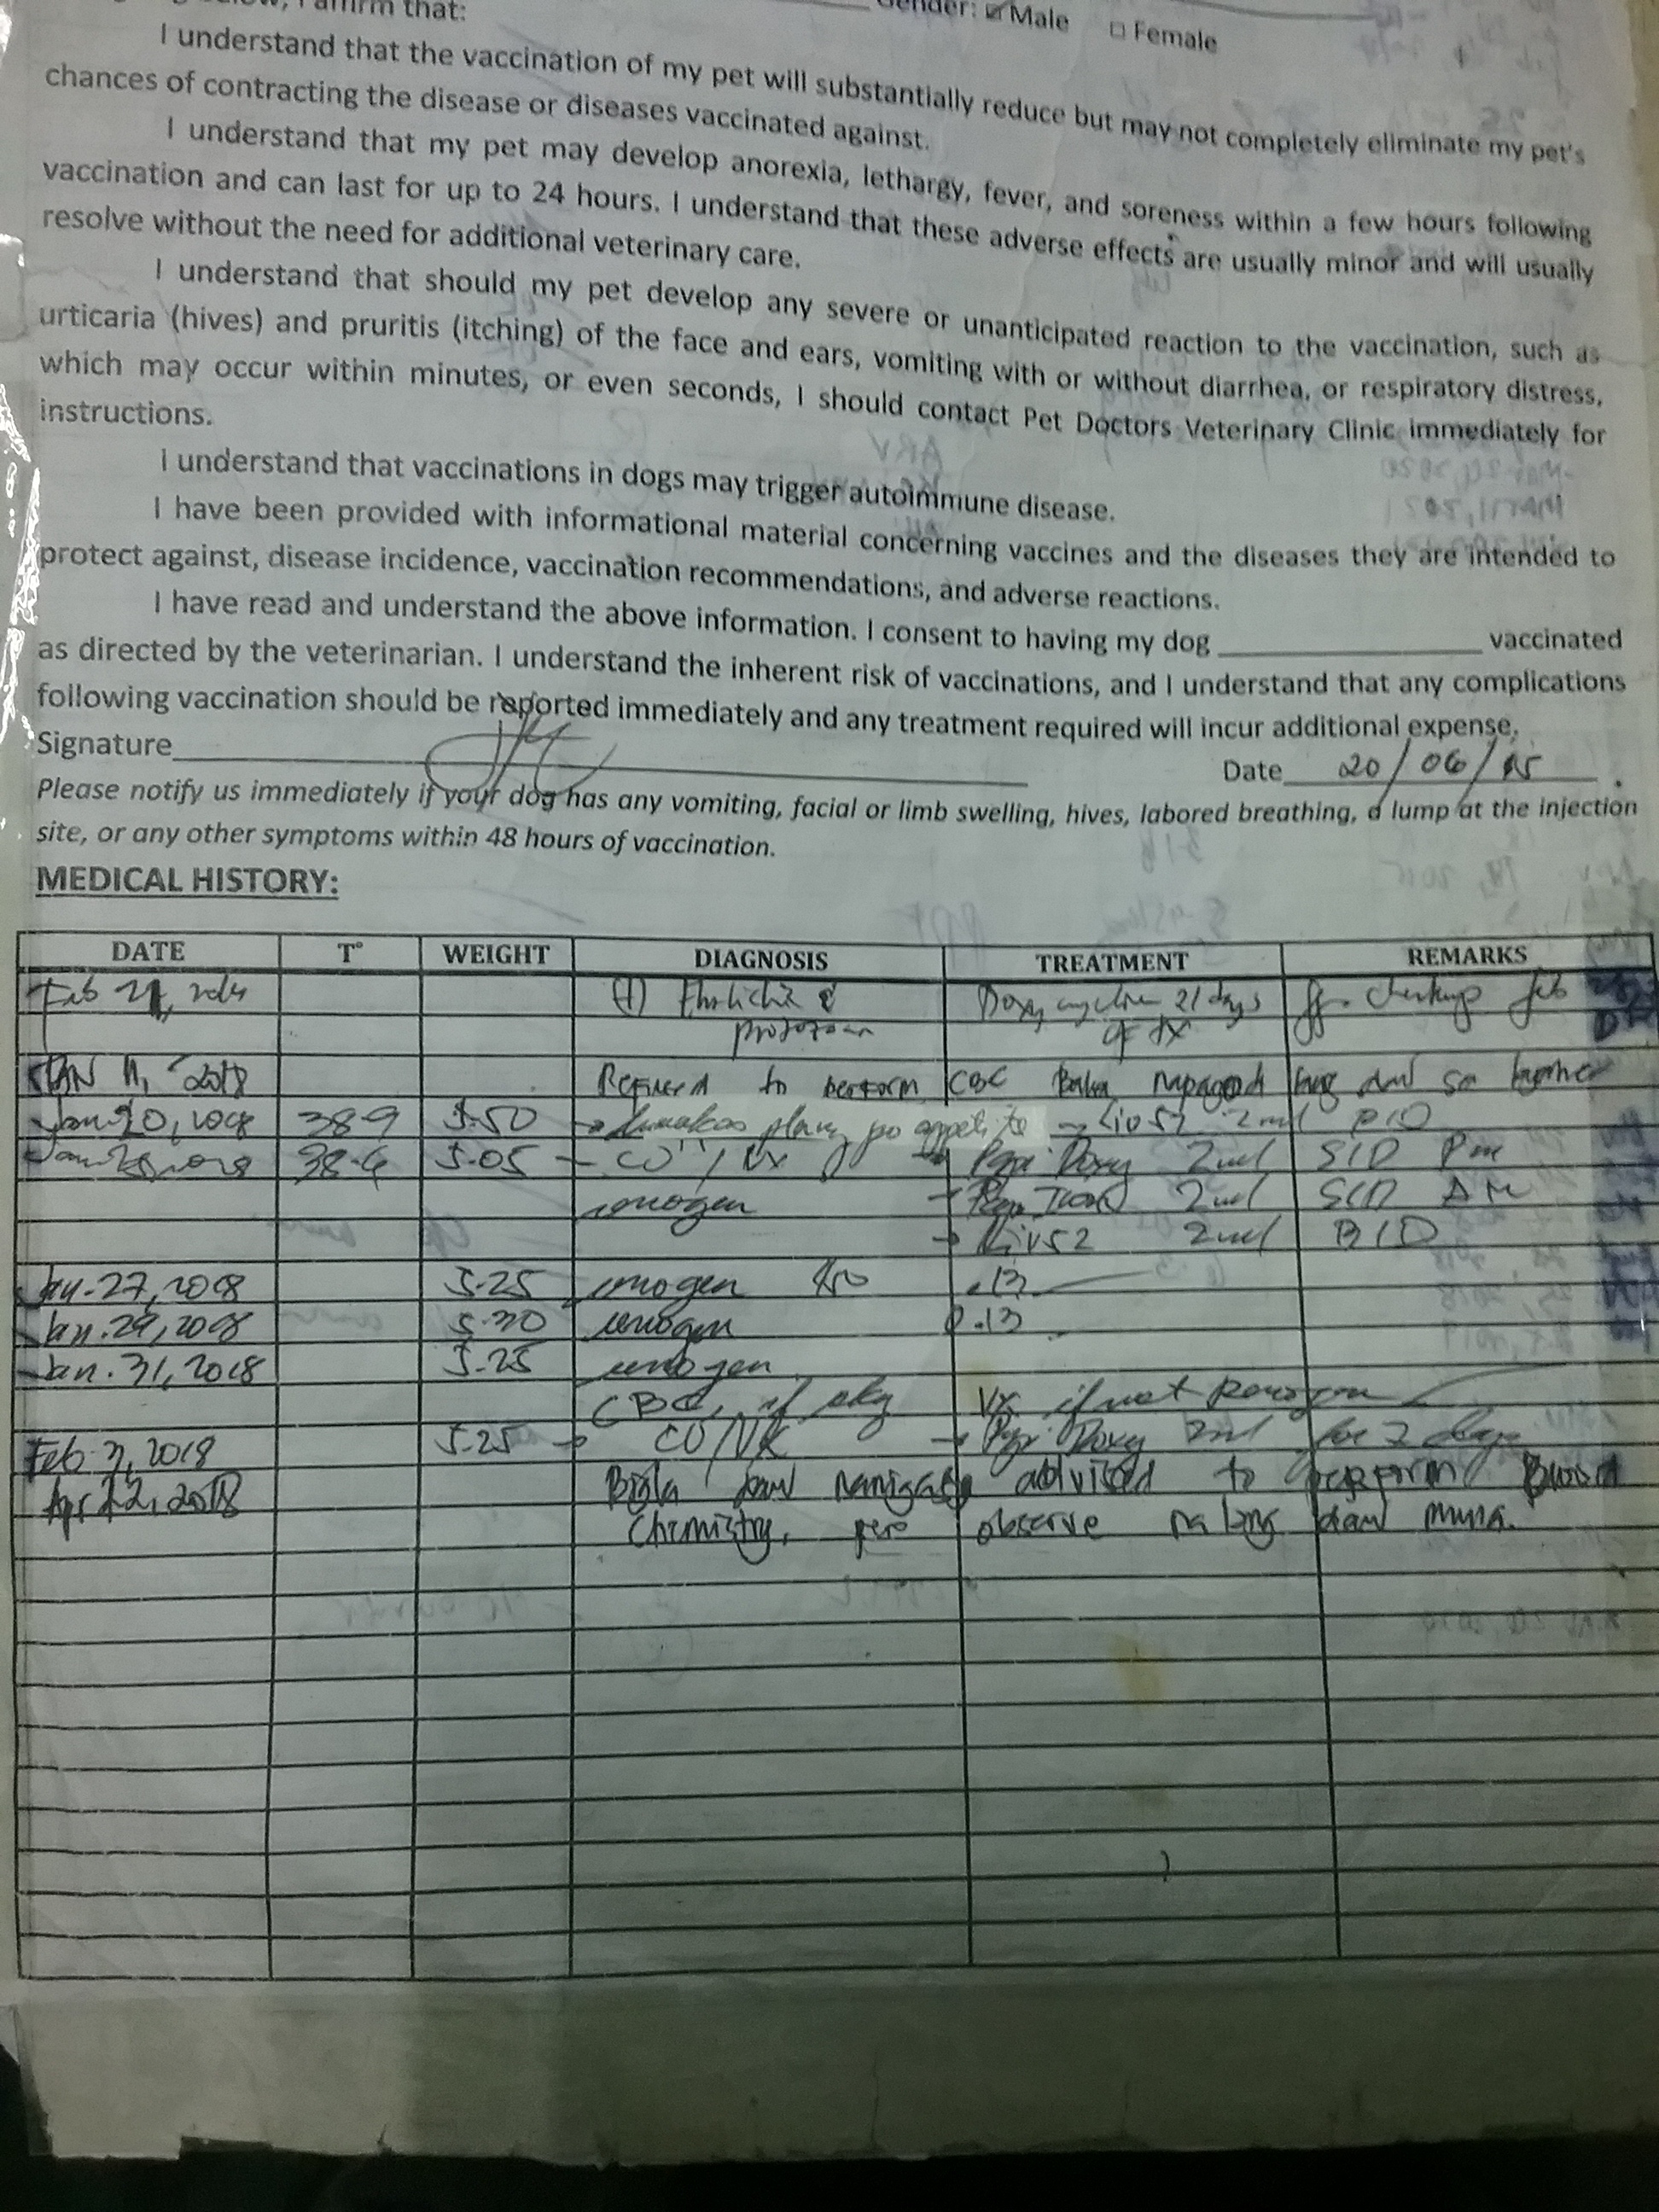 I affirm that:
Gender: ☑ Male □ Female
I understand that the vaccination of my pet will substantially reduce but may not completely eliminate my pet's
chances of contracting the disease or diseases vaccinated against.
I understand that my pet may develop anorexia, lethargy, fever, and soreness within a few hours following
vaccination and can last for up to 24 hours. I understand that these adverse effects are usually minor and will usually
resolve without the need for additional veterinary care.
I understand that should my pet develop any severe or unanticipated reaction to the vaccination, such as
urticaria (hives) and pruritis (itching) of the face and ears, vomiting with or without diarrhea, or respiratory distress,
which may occur within minutes, or even seconds, I should contact Pet Doctors Veterinary Clinic immediately for
instructions.
I understand that vaccinations in dogs may trigger autoimmune disease.
I have been provided with informational material concerning vaccines and the diseases they are intended to
protect against, disease incidence, vaccination recommendations, and adverse reactions.
I have read and understand the above information. I consent to having my dog ____________ vaccinated
as directed by the veterinarian. I understand the inherent risk of vaccinations, and I understand that any complications
following vaccination should be reported immediately and any treatment required will incur additional expense.
Signature____________ Date 20/06/15
Please notify us immediately if your dog has any vomiting, facial or limb swelling, hives, labored breathing, a lump at the injection
site, or any other symptoms within 48 hours of vaccination.
MEDICAL HISTORY:
DATE T° WEIGHT DIAGNOSIS TREATMENT REMARKS
(+) Ehrlichia & Doxycycline 21 days ff. checkup feb
protozoan of tx
JAN 11, 2018 Refused to perform CBC Baka mapagod lang daw sa byahe
Jan 20, 2018 38.9 5.50 lumakas appetite Liv52 2ml BID
38.6 5.05 Doxy 2ml SID PM
imogen 2ml SID AM
Liv52 2ml BID
Jan. 27, 2018 5.25 imogen .13
Jan. 29, 2018 5.30 imogen 0.13
Jan. 31, 2018 5.25 imogen
CBC, if okay Vx, if not
Feb 3, 2018 5.25 CO/VX Doxy 2ml for 7 days
Apr 22, 2018 Bigla daw nanigas advised to perform Blood
Chemistry, pero observe na lang daw muna.